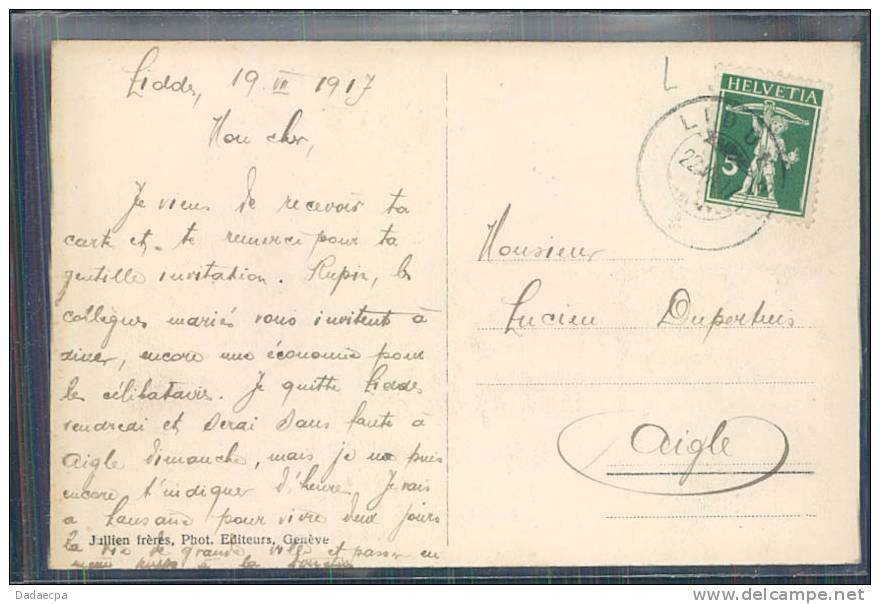 Liddes, 19 VII 1917
HELVETIA
5
LIDDES
22
Mon cher,
Je viens de recevoir ta
carte et te remercie pour ta
gentille invitation. Rupin, les
collègues mariés vous invitent à
diner, encore une économie pour
les célibataires. Je quitte Liddes
vendredi et serai sans faute à
Aigle dimanche, mais je ne puis
encore t'indiquer d'heure. Je vais
a Lausanne pour vivre deux jours
la vie de grande ville et passer en
à la
Jullien frères, Phot. Editeurs, Genève
Monsieur
Lucien Dupertuis
Aigle
Dadaecpa
www.delcampe.net